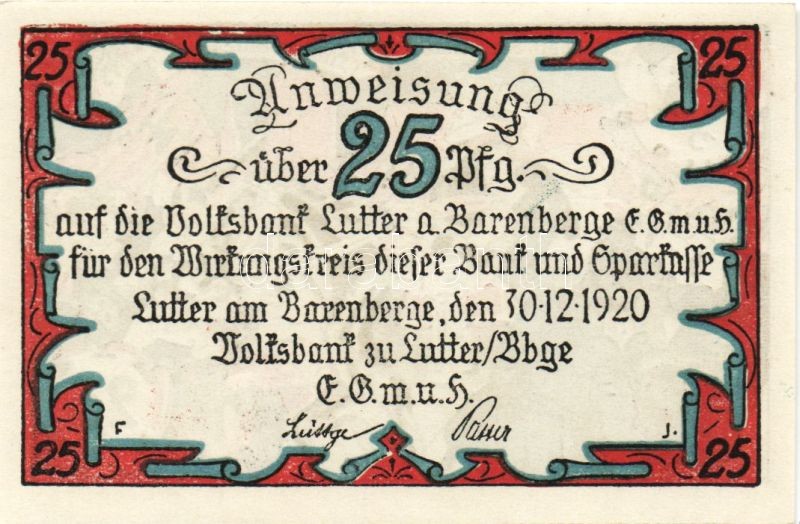 25 25
Anweisung
über 25 Pfg.
auf die Volksbank Lutter a. Barenberge E.G.m.u.H.
für den Wirkungskreis dieser Bank und Sparkasse
Lutter am Barenberge, den 30·12·1920
Volksbank zu Lutter/Bbge
E.G.m.u.H.
F J.
25 25